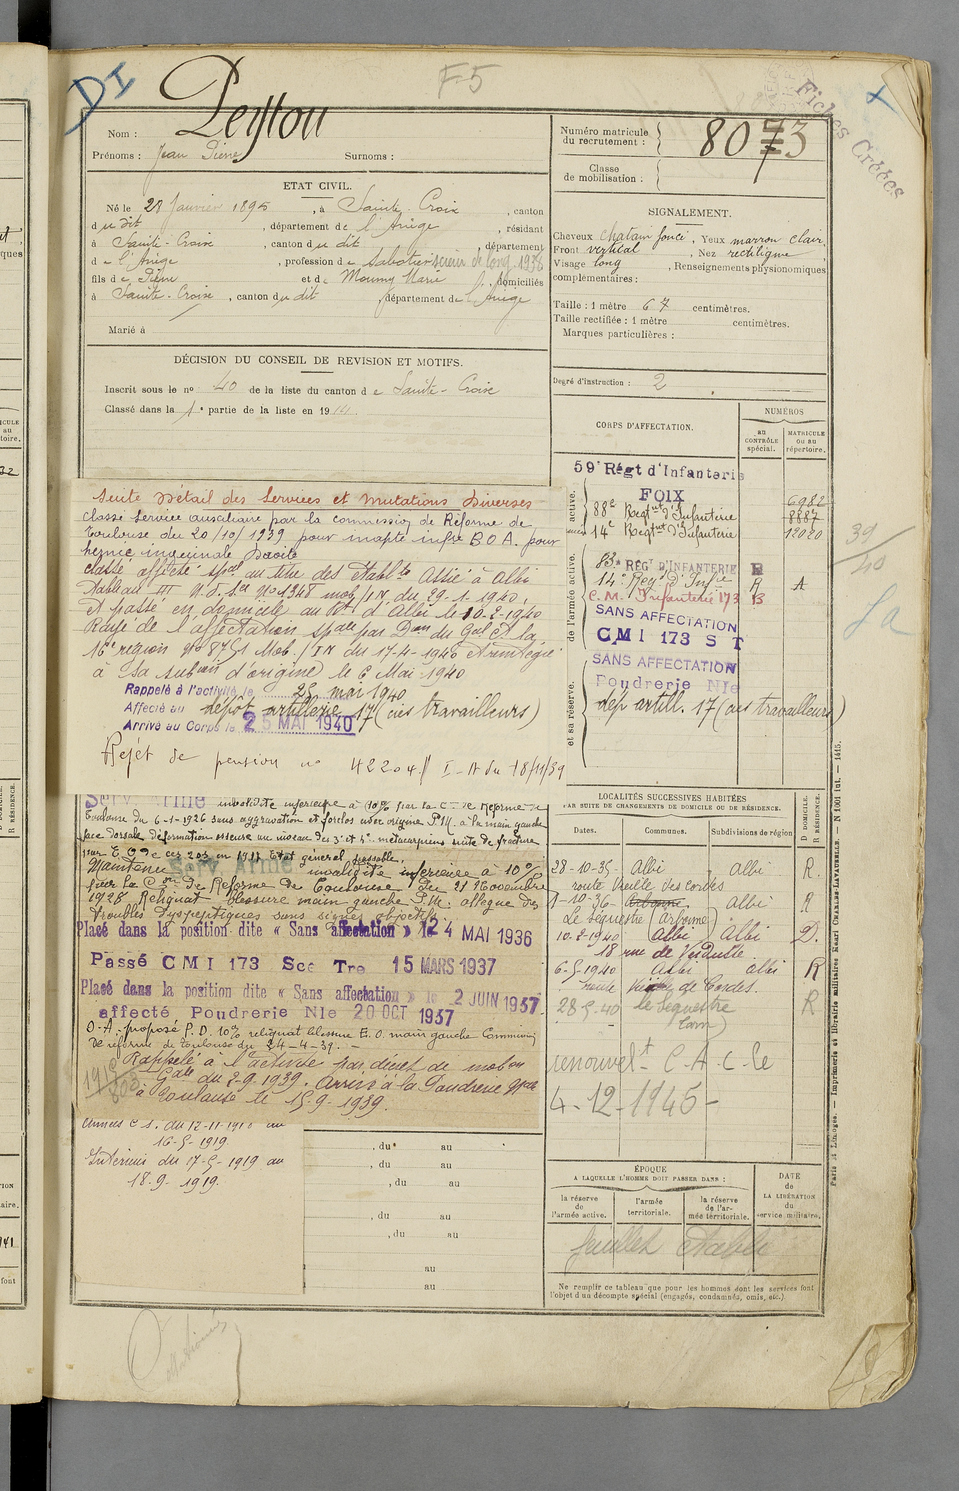 DI
F-5
Fiches Créées
Nom : Peyrou
Prénoms : Jean Pierre Surnoms :
Numéro matricule du recrutement : 8073
Classe de mobilisation :
ETAT CIVIL.
Né le 28 Janvier 1895, à Sainte-Croix, canton
du dit, département de l'Ariège, résidant
à Sainte-Croix, canton du dit, département
de l'Ariège, profession de Sabotier scieur de long 1938
fils de Pierre et de Mourny Marie, domiciliés
à Sainte-Croix, canton du dit, département de l'Ariège
Marié à
SIGNALEMENT.
Cheveux chatain foncé, Yeux marron clair,
Front vertical, Nez rectiligne,
Visage long, Renseignements physionomiques
complémentaires :
Taille : 1 mètre 67 centimètres.
Taille rectifiée : 1 mètre centimètres.
Marques particulières :
DÉCISION DU CONSEIL DE REVISION ET MOTIFS.
Inscrit sous le no 40 de la liste du canton de Sainte-Croix
Classé dans la 1e partie de la liste en 1914.
Degré d'instruction : 2
CORPS D'AFFECTATION.
NUMÉROS
au CONTRÔLE spécial.
MATRICULE ou au répertoire.
active.
59e Régt d'Infanterie
FOIX
88e Regt d'Infanterie
14e Regnt d'Infanterie
6982
8887
12020
de l'armée active.
83e RÉGt D'INFANTERIE R
14e Reg d'Infie R A
C. M. Infanterie 173 B
SANS AFFECTATION
CMI 173 S T
et sa réserve.
SANS AFFECTATION
Poudrerie Nle
dép artill. 17 (cies travailleurs)
39/40
Suite Détail des Services et Mutations Diverses
Classé Service auxiliaire par la commission de Réforme de
Toulouse du 20/10/1939 pour inapte infie B O A. pour
hernie inguinale droite
classé affecté spal au titre des Etablts Assié à Albi
Tableau III N.J. 1348 mob/IN du 29-1-1940,
et passé en domicile au Bt d'Albi le 10-2-1940
Rayé de l'affectation spale par Don du Gal Ct la
16e région No 8751 Mob./IN du 17-4-1940 et réintégré
à sa subon d'origine le 6 Mai 1940
Rappelé à l'activité le 25 mai 1940
Affecté au dépôt artillerie 17 (cies travailleurs)
Arrivé au Corps le 25 MAI 1940
Rejet de pension no 42204 / I-A du 18/11/39
Serv. Armé invalidité inférieure à 10% par la Con de Réforme de
Toulouse du 6-1-1926 sans aggravation et forclos avec origine P.M. à la main gauche
face dorsale déformation osseuse au niveau des 3e et 4e métacarpiens suite de fracture
Etat général passable,
Maintenu Serv. Armé invalidité inférieure à 10%
par la Con de Réforme de Toulouse du 21 Novembre
1928 Reliquat blessure main gauche P.M. allègue des
troubles dyspeptiques sans signes objectifs.
Placé dans la position dite « Sans affectation » le 24 MAI 1936
Passé CMI 173 Sec Tre 15 MARS 1937
Placé dans la position dite « Sans affectation » le 2 JUIN 1937
affecté Poudrerie Nle 20 OCT 1937
O-A. proposé P.D. 10% reliquat blessure E.O. main gauche Commission
de réforme de Toulouse du 24-4-39.
Rappelé à l'activité par décret de mobon
Gale du 2-9-1939. Arrivé à la Poudrerie Nale
à Toulouse le 15-9-1939.
du 12-11-1918 au
16-5-1919.
Intérieur du 17-5-1919 au
18-9-1919.
, du au
, du au
, du au
, du au
, du au
au
au
LOCALITÉS SUCCESSIVES HABITÉES
PAR SUITE DE CHANGEMENTS DE DOMICILE OU DE RÉSIDENCE.
Dates. Communes. Subdivisions de région D DOMICILE. R RÉSIDENCE.
28-10-35. Albi Albi R.
route Vieille des cordes
1-10-36 albi R
Le Sequestre
10-2-1940 Albi Albi D.
18 rue de Verdulle
6-5-1940 Albi albi R
route Vieille de Cordes.
28-5-40 le Séquestre R
Tarn)
renouvelt C-A-C- le
4-12-1945-
ÉPOQUE
A LAQUELLE L'HOMME DOIT PASSER DANS :
la réserve de l'armée active.
l'armée territoriale.
la réserve de l'armée territoriale.
DATE de LA LIBÉRATION du service militaire.
feuillet établi
Ne remplir ce tableau que pour les hommes dont les services font
l'objet d'un décompte spécial (engagés, condamnés, omis, etc.).
Paris et Limoges. — Imprimerie et librairie militaires Henri CHARLES-LAVAUZELLE.